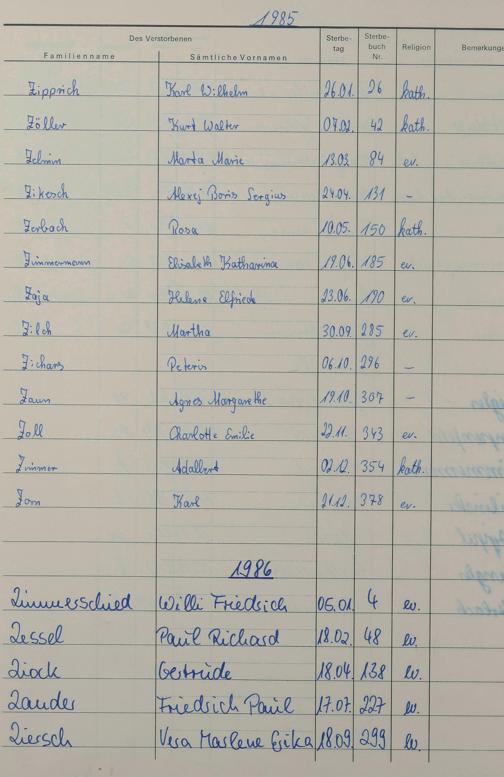 1985
Des Verstorbenen Sterbe- Sterbe- Religion Bemerkunge
Familienname Sämtliche Vornamen tag buch
Nr.
Zipprich Karl Wilhelm 26.01. 26 kath.
Zöller Kurt Walter 07.02. 42 kath.
Zelmin Marta Marie 13.03 84 ev.
Zikesch Alexej Boris Sergius 24.04. 131 –
Zerbach Rosa 10.05. 150 kath.
Zimmermann Elisabeth Katharina 19.06. 185 ev.
Zoja Helene Elfriede 23.06. 190 ev.
Zilch Martha 30.09. 285 ev.
Zichars Peteris 06.10. 296 –
Zaun Agnes Margarethe 19.10. 307 –
Zoll Charlotte Emilie 22.11. 343 ev.
Zimmer Adalbert 02.12. 354 kath.
Zorn Karl 21.12. 378 ev.
1986
Zimmerschied Willi Friedrich 05.01. 4 ev.
Zessel Paul Richard 18.02. 48 ev.
Ziock Gertrude 18.04. 138 ev.
Zander Friedrich Paul 17.07. 227 ev.
Ziersch Vera Marlene Erika 18.09. 299 ev.